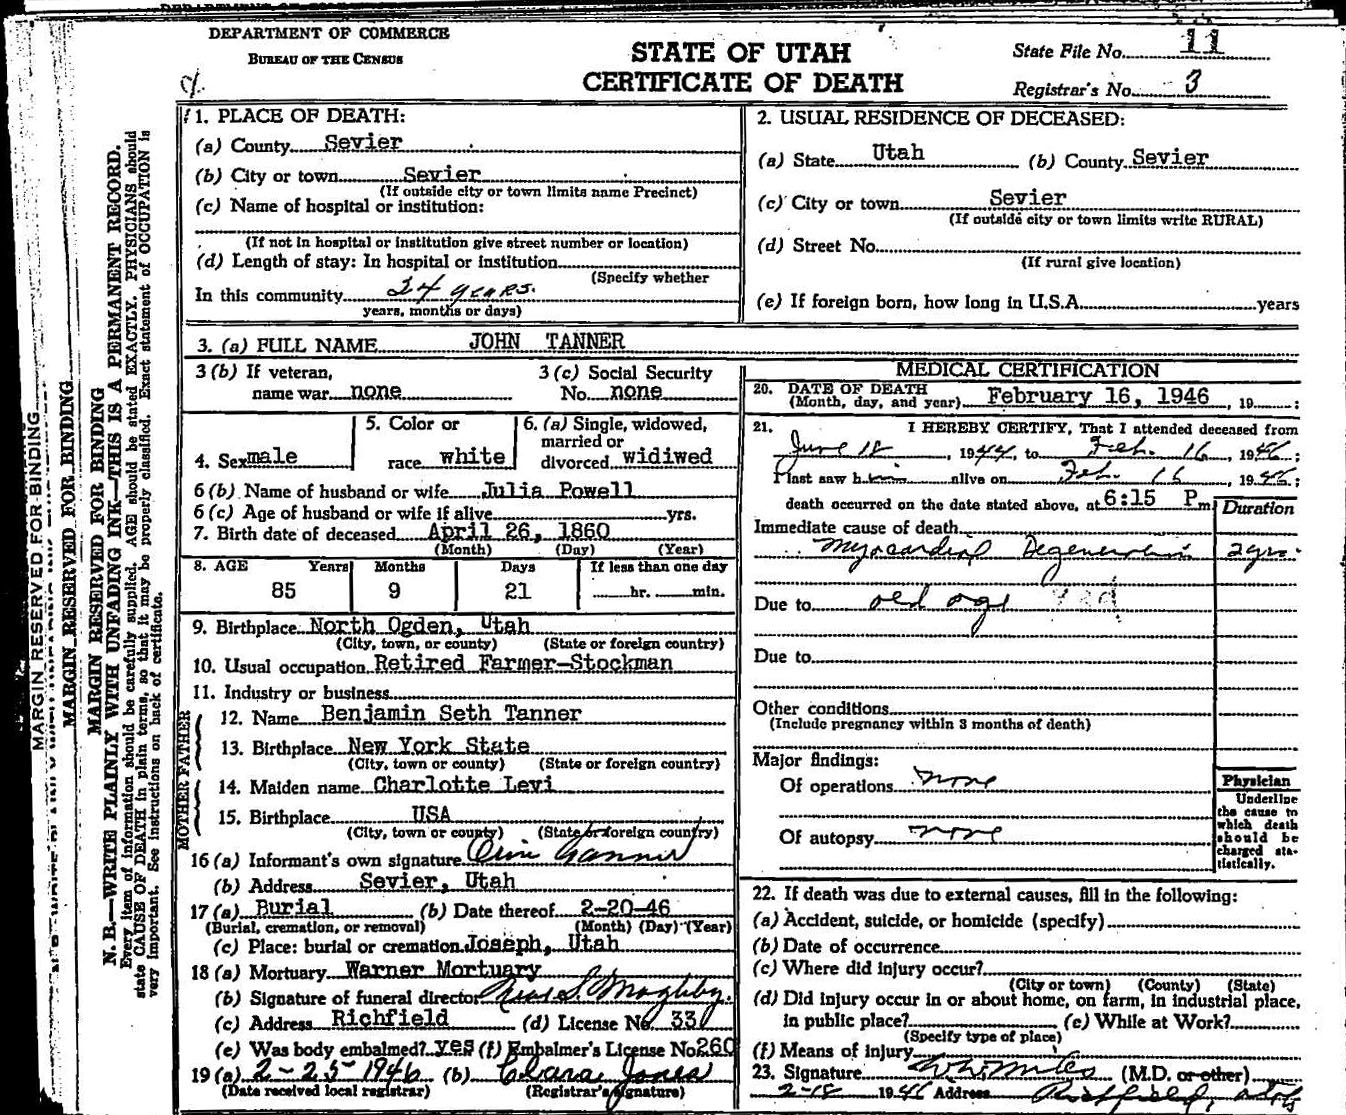 DEPARTMENT OF COMMERCE
BUREAU OF THE CENSUS
STATE OF UTAH
CERTIFICATE OF DEATH
State File No. 11
Registrar's No. 3
MARGIN RESERVED FOR BINDING
MARGIN RESERVED FOR BINDING
MARGIN RESERVED FOR BINDING
N. B.—WRITE PLAINLY WITH UNFADING INK—THIS IS A PERMANENT RECORD.
Every item of information should be carefully supplied. AGE should be stated EXACTLY. PHYSICIANS should
state CAUSE OF DEATH in plain terms, so that it may be properly classified. Exact statement of OCCUPATION is
very important. See instructions on back of certificate.
1. PLACE OF DEATH:
(a) County Sevier
(b) City or town Sevier
(If outside city or town limits name Precinct)
(c) Name of hospital or institution:
(If not in hospital or institution give street number or location)
(d) Length of stay: In hospital or institution
(Specify whether
In this community 24 years.
years, months or days)
2. USUAL RESIDENCE OF DECEASED:
(a) State Utah (b) County Sevier
(c) City or town Sevier
(If outside city or town limits write RURAL)
(d) Street No.
(If rural give location)
(e) If foreign born, how long in U.S.A. years
3. (a) FULL NAME JOHN TANNER
3 (b) If veteran, name war none
3 (c) Social Security No. none
4. Sex male
5. Color or race white
6. (a) Single, widowed, married or divorced widiwed
6 (b) Name of husband or wife Julia Powell
6 (c) Age of husband or wife if alive yrs.
7. Birth date of deceased April 26, 1860
(Month) (Day) (Year)
8. AGE Years Months Days If less than one day
85 9 21 hr. min.
9. Birthplace North Ogden, Utah
(City, town, or county) (State or foreign country)
10. Usual occupation Retired Farmer-Stockman
11. Industry or business
FATHER
12. Name Benjamin Seth Tanner
13. Birthplace New York State
(City, town or county) (State or foreign country)
MOTHER
14. Maiden name Charlotte Levi
15. Birthplace USA
(City, town or county) (State or foreign country)
16 (a) Informant's own signature Tanner
(b) Address Sevier, Utah
17 (a) Burial (b) Date thereof 2-20-46
(Burial, cremation, or removal) (Month) (Day) (Year)
(c) Place: burial or cremation Joseph, Utah
18 (a) Mortuary Warner Mortuary
(b) Signature of funeral director
(c) Address Richfield (d) License No. 330
(e) Was body embalmed? yes (f) Embalmer's License No. 260
19 (a) 2-25-1946 (b) Clara Jones
(Date received local registrar) (Registrar's signature)
MEDICAL CERTIFICATION
20. DATE OF DEATH
(Month, day, and year) February 16, 1946, 19 ;
21. I HEREBY CERTIFY, That I attended deceased from
June 18, 1944, to Feb. 16, 1946;
I last saw him alive on Feb. 16 1946;
death occurred on the date stated above, at 6:15 P m.
Duration
Immediate cause of death
Myocardial Degeneration 2 yrs.
Due to old age
Due to
Other conditions
(Include pregnancy within 3 months of death)
Major findings:
Of operations none
Of autopsy none
Physician
Underline
the cause to
which death
should be
charged sta-
tistically.
22. If death was due to external causes, fill in the following:
(a) Accident, suicide, or homicide (specify)
(b) Date of occurrence
(c) Where did injury occur?
(City or town) (County) (State)
(d) Did injury occur in or about home, on farm, in industrial place,
in public place? (e) While at Work?
(Specify type of place)
(f) Means of injury
23. Signature (M.D. or other)
2-18 1946 Address Richfield, Utah